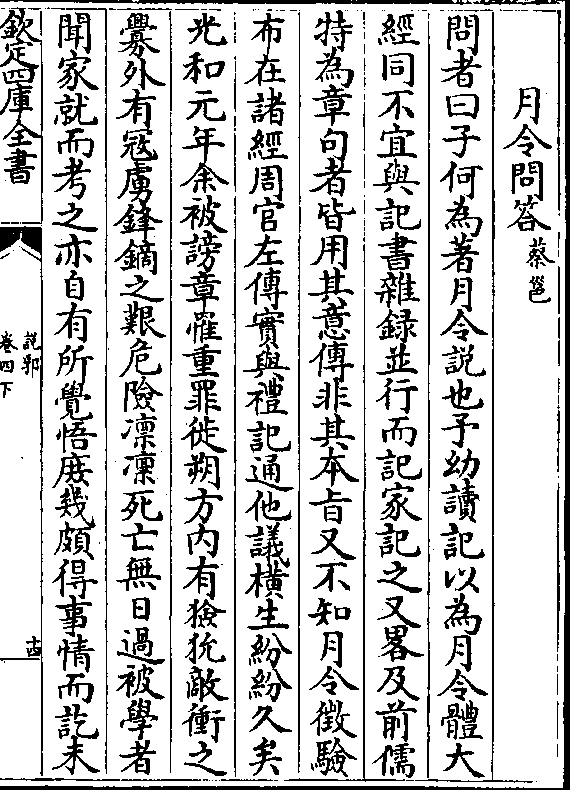 月令問答 蔡邕
問者曰子何為著月令說也予幼讀記以為月令體大
經同不宜與記書雜録並行而記家記之又畧及前儒
特為章句者皆用其意傳非其本㫖又不知月令徵驗
布在諸經周官左傳實與禮記通他議横生紛紛久矣
光和元年余被謗章罹重罪徙朔方内有獫狁敵衝之
釁外有冦虜鋒鏑之艱危險凛凛死亡無日過被學者
聞家就而考之亦自有所覺悟庻幾頗得事情而訖未
欽定四庫全書
說郛
卷四下
十四